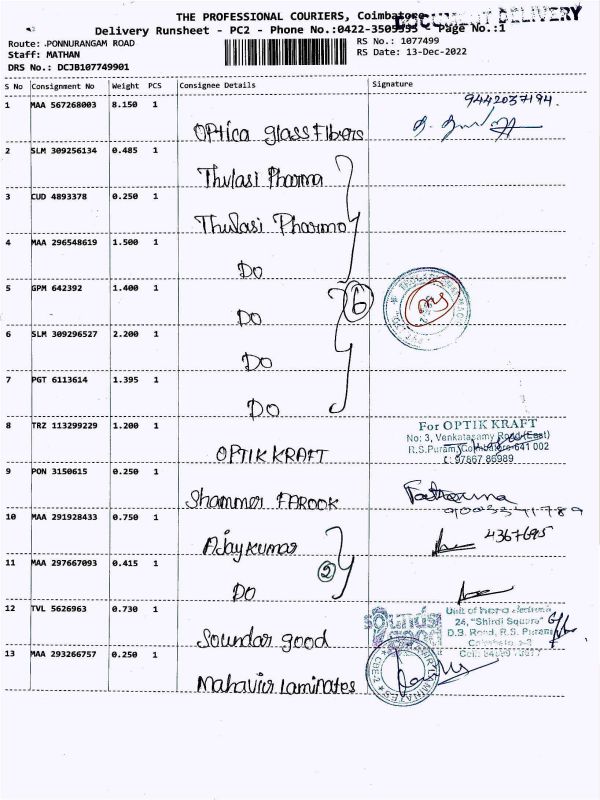 THE PROFESSIONAL COURIERS, Coimbatore
DOCUMENT DELIVERY
Delivery Runsheet - PC2 - Phone No.:0422-3505555 - Page No.:1
Route: .PONNURANGAM ROAD
RS No.: 1077499
Staff: MATHAN
RS Date: 13-Dec-2022
DRS No.: DCJB107749901
S No Consignment No Weight PCS Consignee Details Signature
1 MAA 567268003 8.150 1
9442037194.
Optica glass Fibers
2 SLM 309256134 0.485 1
Thulasi Pharma
3 CUD 4893378 0.250 1
Thulasi Pharma
4 MAA 296548619 1.500 1
DO
5 GPM 642392 1.400 1
6
DO
6 SLM 309296527 2.200 1
DO
7 PGT 6113614 1.395 1
DO
8 TRZ 113299229 1.200 1
For OPTIK KRAFT
No: 3, Venkatasamy Road (East)
R.S.Puram, Coimbatore-641 002
OPTIK KRAFT
9 PON 3150615 0.250 1
Shammer FAROOK
10 MAA 291928433 0.750 1
4367695
Ajay kumar
11 MAA 297667093 0.415 1
2
DO
12 TVL 5626963 0.730 1
sounds good
Unit of hero electronix
26, "Shirdi Square"
D.B. Road, R.S. Puram
Soundar good
13 MAA 293266757 0.250 1
Mahavir Laminates